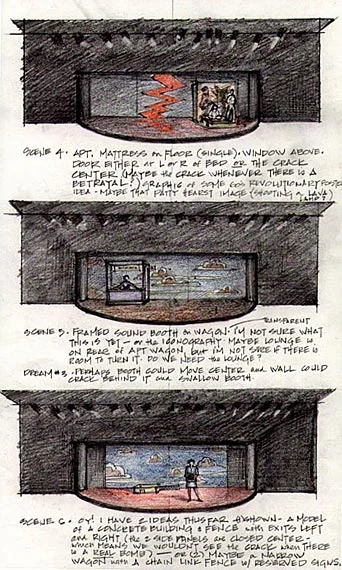 SCENE 4 · APT. MATTRESS on FLOOR (SINGLE). WINDOW ABOVE.
DOOR EITHER at L or R of BED OR THE CRACK
CENTER (MAYBE the CRACK WHENEVER THERE IS A
BETRAYAL?) GRAPHIC of SOME 60s REVOLUTIONARY POSTER
IDEA - MAYBE THAT PATTY HEARST IMAGE (SHOOTING a LAVA
LAMP?)
TRANSPARENT
SCENE 5 · FRAMED SOUND BOOTH on WAGON. I'M NOT SURE WHAT
THIS IS YET - or the ICONOGRAPHY. MAYBE LOUNGE is
on REAR of APT WAGON, but I'M NOT SURE IF THERE IS
ROOM TO TURN IT. DO WE NEED the LOUNGE?
DREAM #3 · PERHAPS BOOTH COULD MOVE CENTER and WALL COULD
CRACK BEHIND IT and SWALLOW BOOTH.
SCENE 6 · OY! I HAVE 2 IDEAS THUS FAR SHOWN - A MODEL
of A CONCRETE BUILDING & FENCE with EXITS LEFT
and RIGHT (the 2 SIDE PANELS ARE CLOSED CENTER -
WHICH MEANS WE WOULDN'T SEE the CRACK WHEN THERE
IS A REAL BOMB) - or (2) MAYBE a NARROW
WAGON with A CHAIN LINK FENCE w/ RESERVED SIGNS.